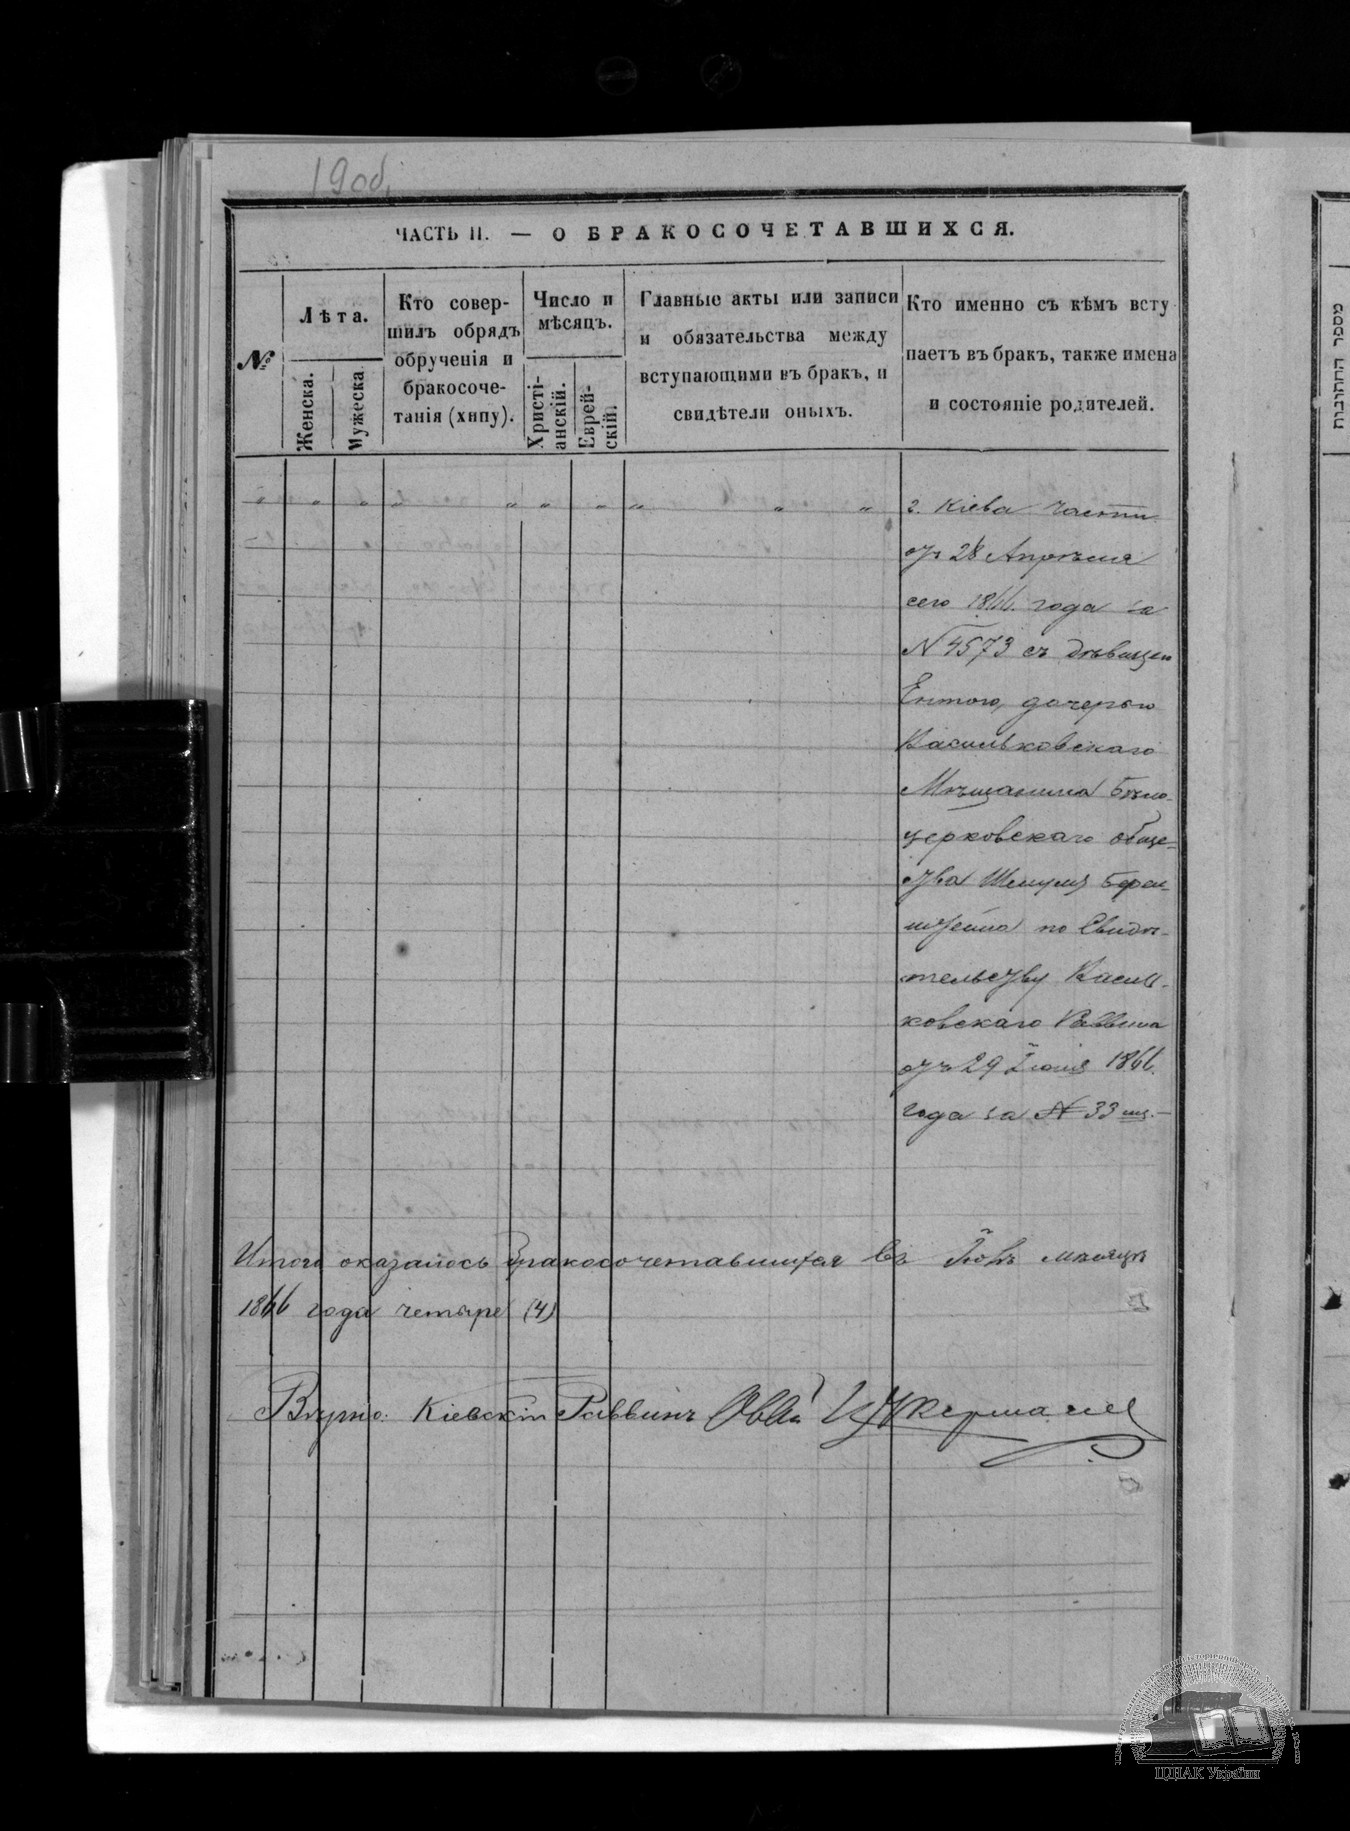 19 об.
ЧАСТЬ II. — О БРАКОСОЧЕТАВШИХСЯ.
№
Лѣта.
Женска.
Мужеска
Кто совер-
шилъ обрядъ
обрученія и
бракосоче-
танія (хипу).
Число и
мѣсяцъ.
Христі-
анскій.
Еврей-
скій.
Главные акты или записи
и обязательства между
вступающими въ бракъ, и
свидѣтели оныхъ.
Кто именно съ кѣмъ всту
паетъ въ бракъ, также имена
и состояніе родителей.
" " " " " " " " " "
г. Кіева части
отъ 28 Апрѣля
сего 1866 года за
№ 4573 съ дѣвицею
Ентою, дочерью
Васильковскаго
Мѣщанина Бѣло-
церковскаго обще-
ства Шмуля Берен-
штейна по Свидѣ-
тельству Василь-
ковскаго Раввина
отъ 29 Іюля 1866
года за № 33
Итого оказалось бракосочетавшихся въ мѣсяцѣ
1866 года четыре (4)
Вѣрно: Кіевскій Раввинъ Цукерманъ
מספר החתונות
ЦДІАК України